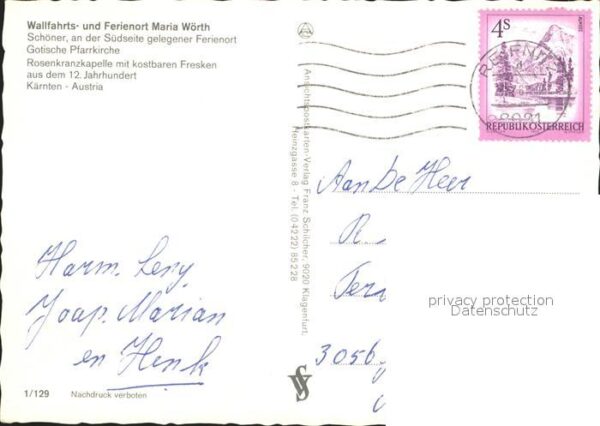 Wallfahrts- und Ferienort Maria Wörth
Schöner, an der Südseite gelegener Ferienort
Gotische Pfarrkirche
Rosenkranzkapelle mit kostbaren Fresken
aus dem 12. Jahrhundert
Kärnten - Austria
4S
ALMSEE
REIFNITZ
REPUBLIK ÖSTERREICH
Ansichtspostkarten-Verlag Franz Schilcher, 9020 Klagenfurt,
Heinzgasse 8 - Tel. (04222) 85228
Aan De Heer
R
Ter
3056
privacy protection
Datenschutz
Harm. Leny
Joap. Marian
en Henk
1/129
Nachdruck verboten